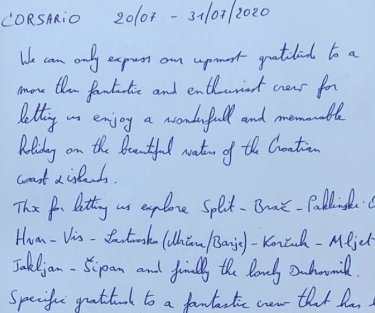 CORSARIO 20/07 - 31/07/2020
We can only express our upmost gratitude to a
more than fantastic and enthusiast crew for
letting us enjoy a wonderfull and memorable
holiday on the beautiful waters of the Croatian
coast & islands.
Thx for letting us explore Split - Brač - Paklinski
Hvar - Vis - Lastovsko - Korčula - Mljet
Jakljan - Šipan and finally the lovely Dubrovnik.
Specific gratitude to a fantastic crew that has